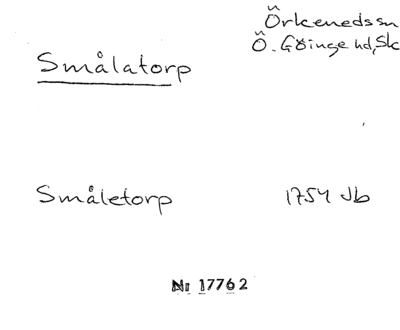 Örkenedssn
Ö. Göinge hd, Sk
Smålatorp
Småletorp 1754 Jb
Nr 17762